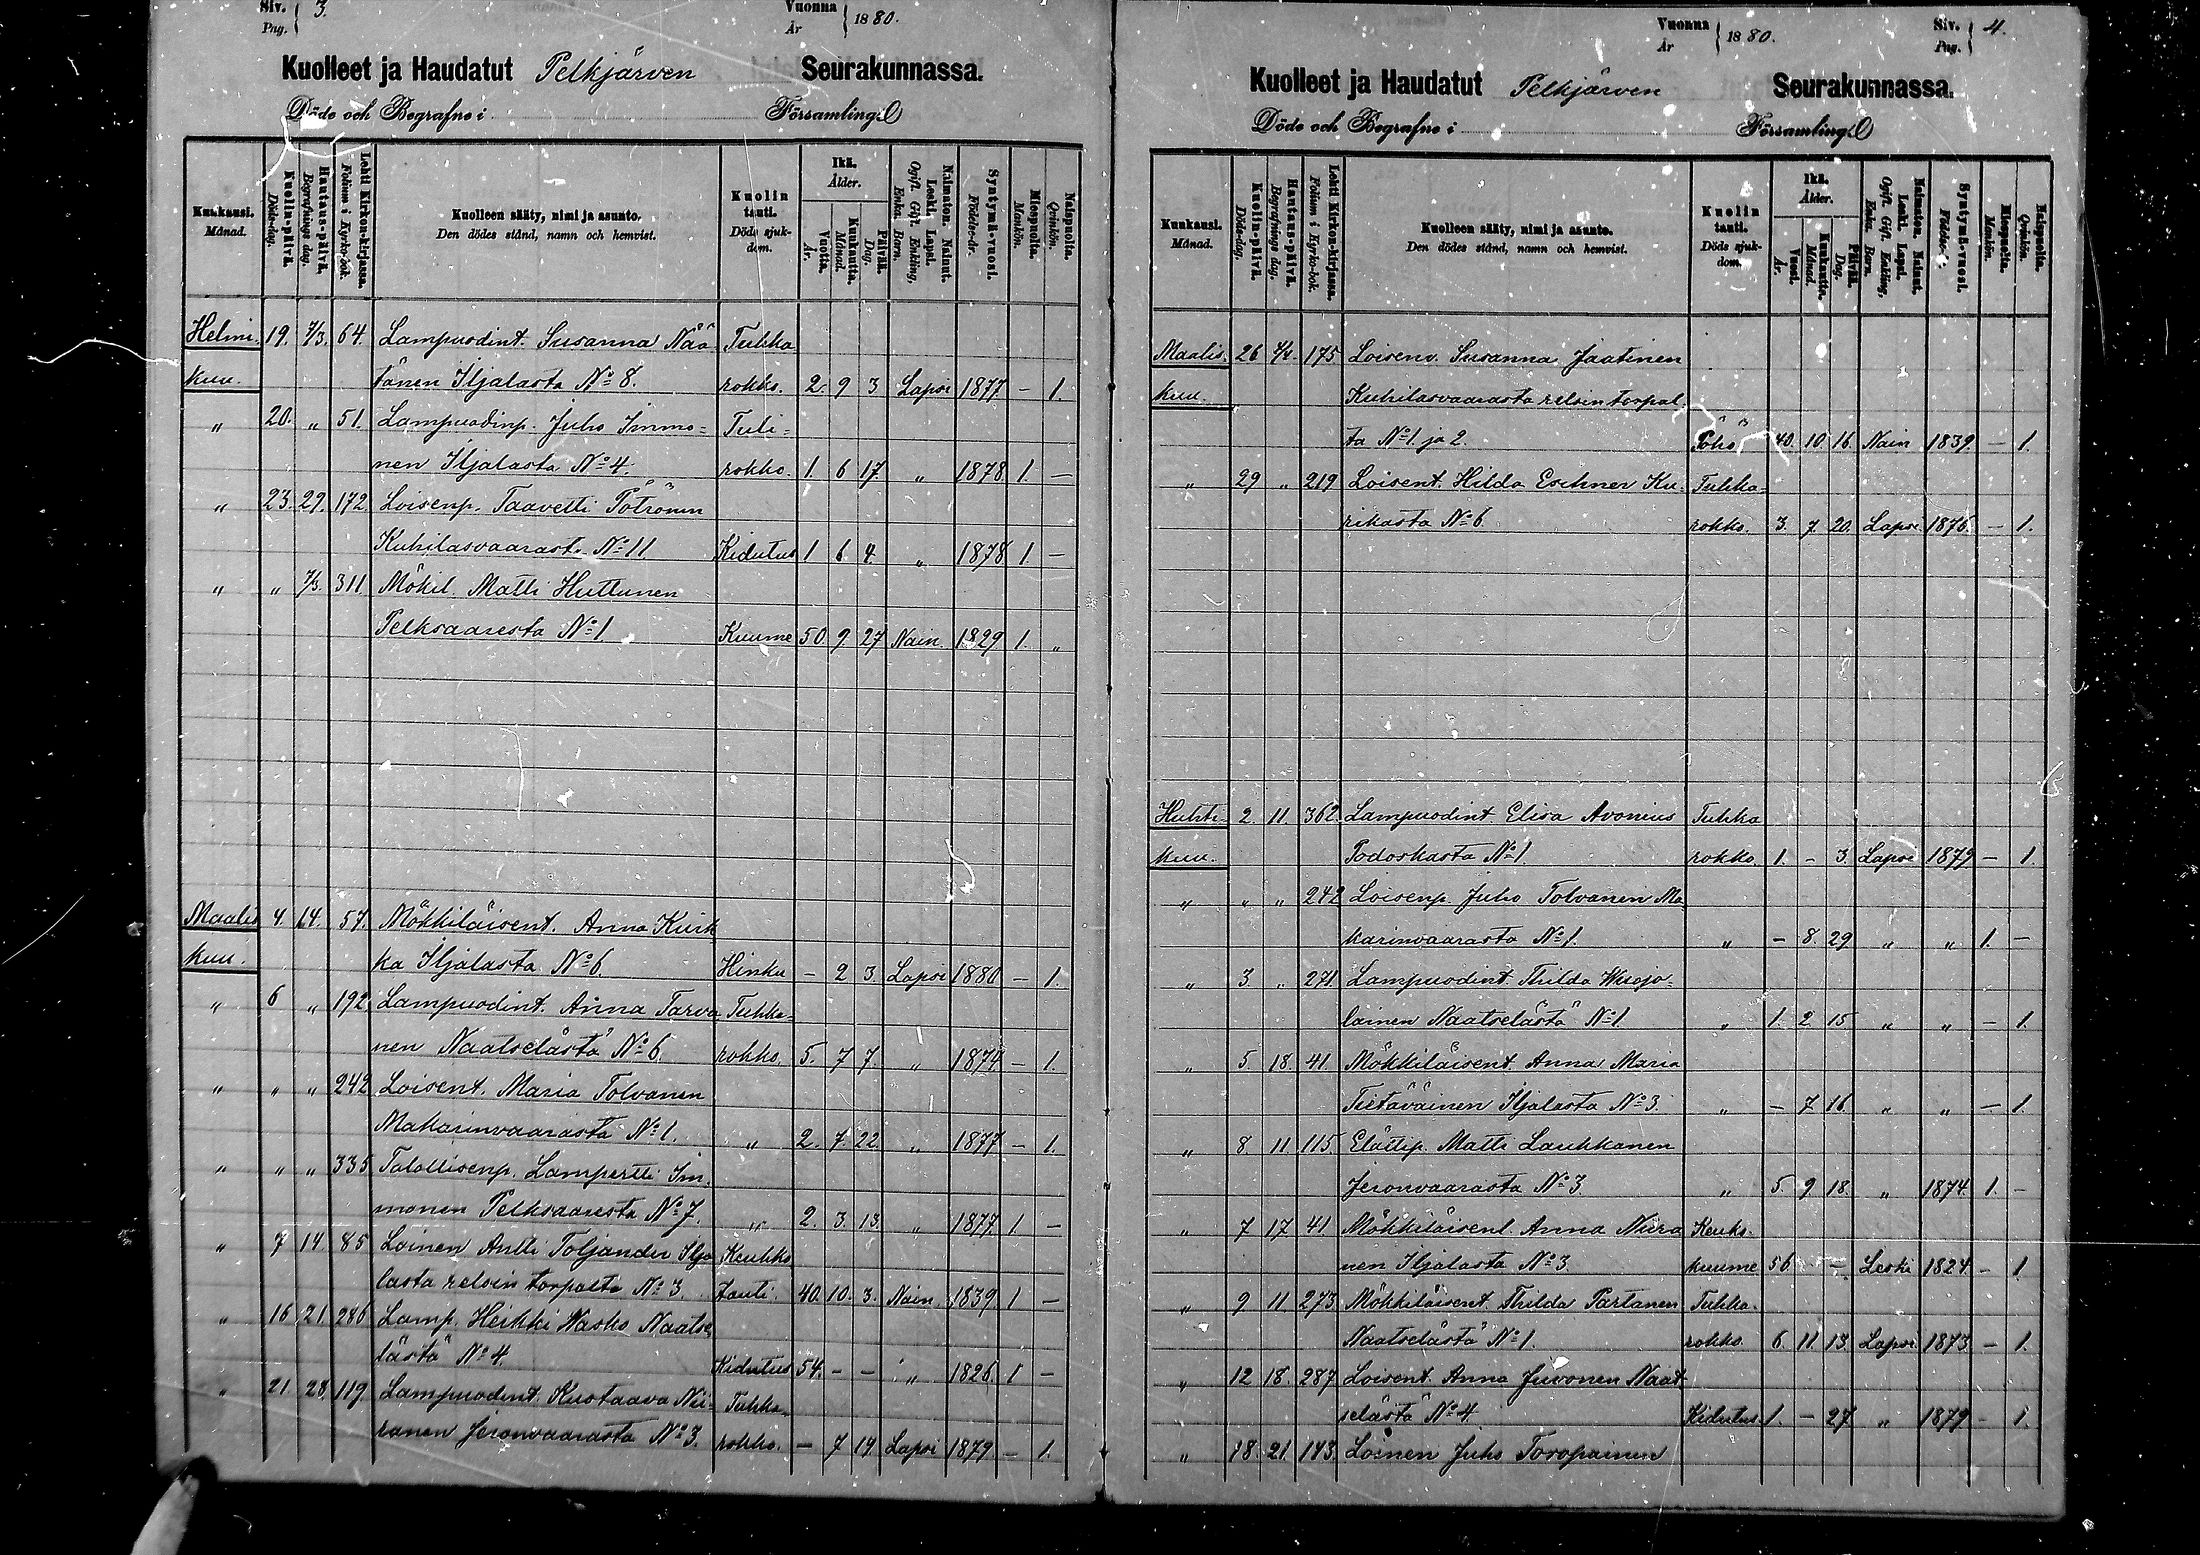 Siv. 3. Vuonna 1880.
Pag. År
Kuolleet ja Haudatut Pelkjärven Seurakunnassa.
Döde och Begrafne i Församling.
Kuukausi. Månad.
Kuolin-päivä. Döds-dag.
Hautaus-päivä. Begrafnings dag.
Lehti Kirkon-kirjassa. Folium i Kyrko-bok.
Kuolleen sääty, nimi ja asunto. Den dödes stånd, namn och hemvist.
Kuolin tauti. Döds sjukdom.
Ikä. Ålder.
Vuotta. År.
Kuukautta. Månad.
Päivää. Dag.
Naimaton. Nainut. Leski. Lapsi. Ogift. Gift. Enkling, Enka. Barn.
Syntymä-vuosi. Födelse-år.
Miespuolia. Mankön.
Naispuolia. Qvinkön.
Helmi. 19. 7/3. 64. Lampuodint. Susanna Nää Tuhka
kuu. tänen Iljalasta No 8. rokko. 2. 9 3 Lapsi 1877 — 1.
„ 20. „ 51. Lampuodinp. Juho Immo= Tuli=
nen Iljalasta No 4. rokko. 1. 6 17. „ 1878 1. —
„ 23. 29. 172. Loisenp. Taavetti Pötrönen
Kuhilasvaarasta No 11 Kidutus 1 6 4. „ 1878 1. —
„ „ 7/3. 311. Mökil. Matti Huttunen
Pelksaaresta No 1 Kuume 50. 9. 27 Nain. 1829 1. „
Maalis 4 14. 57. Mökkiläisent. Anna Kuik
kuu. ka Iljalasta No 6. Hinku — 2 3. Lapsi 1880 — 1.
„ 6 „ 192. Lampuodint. Anna Tarva Tuhka=
nen Naatselästä No 6. rokko. 5. 7 7. „ 1874 — 1.
„ „ „ 242 Loisent. Maria Tolvanen
Makarinvaarasta No 1. „ 2. 7. 22. „ 1877 — 1.
„ „ „ 335 Talollisenp. Lampertti Im
monen Pelksaaresta No 7. „ 2. 3. 13. „ 1877 1 —
„ 7 14. 85 Loinen Antti Toljander Ilja Keuhko
lasta relsin torpalta No 3. tauti. 40. 10. 3. Nain. 1839 1 —
„ 16. 21. 286 Lamp. Heikki Wasko Naatse
lästä No 4. Kidutus 54. — — „ 1826. 1 —
„ 21. 28. 119. Lampuodint. Kustaava Nii= Tuhka=
ranen Jeronvaarasta No 3. rokko. — 7 14 Lapsi 1879 — 1.
Vuonna 1880. Siv. 4.
År Pag.
Kuolleet ja Haudatut Pelkjärven Seurakunnassa.
Döde och Begrafne i Församling.
Kuukausi. Månad.
Kuolin-päivä. Döds-dag.
Hautaus-päivä. Begrafnings dag.
Lehti Kirkon-kirjassa. Folium i Kyrko-bok.
Kuolleen sääty, nimi ja asunto. Den dödes stånd, namn och hemvist.
Kuolin tauti. Döds sjukdom.
Ikä. Ålder.
Vuosi. År.
Kuukautta. Månad.
Päivää. Dag.
Naimaton. Nainut. Leski. Lapsi. Ogift. Gift. Enkling, Enka. Barn.
Syntymä-vuosi. Födelse
Miespuolia. Mankön.
Naispuolia. Qvinkön.
Maalis. 26 4/4. 175 Loisenv. Susanna Jaatinen
kuu. Kuhilasvaarasta relsin torpal
ta No 1 ja 2. Pöhö 40. 10. 16. Nain 1839. — 1.
„ 29 „ 219 Loisent. Hilda Eschner Ku= Tuhka=
rikasta No 6. rokko. 3. 7 20. Lapsi 1876. — 1.
Huhti 2. 11. 362. Lampuodint Elisa Avonius Tuhka
kuu. Podoskasta No 1. rokko. 1. — 3. Lapsi 1879 — 1.
„ „ „ 242 Loisenp. Juho Tolvanen Ma
karinvaarasta No 1. „ — 8. 29 „ „ 1. —
„ 3. „ 271. Lampuodint. Thilda Wesojo=
lainen Naatselästä No 1 „ 1. 2 15 „ „ — 1.
„ 5. 18. 41 Mökkiläisent. Anna Maria
Tietäväinen Iljalasta No 3. „ — 7 16. „ „ — 1.
„ 8. 11. 115. Elättip. Matti Laukkanen
Jeronvaarasta No 3 „ 5. 9 18. „ 1874. 1. —
„ 7 17 41 Mökkiläisent Anna Nuu Keuhko-
nen Iljalasta No 3. kuume 56 — — Leski 1824 — 1.
„ 9 11. 273. Mökkiläisent. Thilda Partanen Tuhka.
Naatselästä No 1. rokko. 6. 11. 13. Lapsi. 1873. — 1.
„ 12 18. 287 Loisent. Anna Juvonen Naat
selästä No 4. Kidutus 1. — 27. „ 1879. — 1.
„ 18. 21. 143. Loinen Juho Toropainen